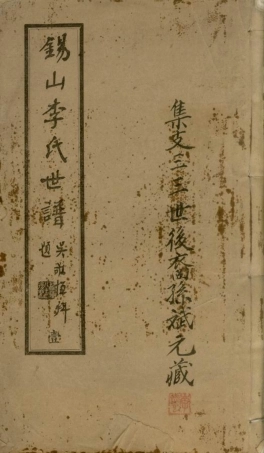 集支三三世後裔孫斌元藏
錫山李氏世譜
吳敬恆
題
壹